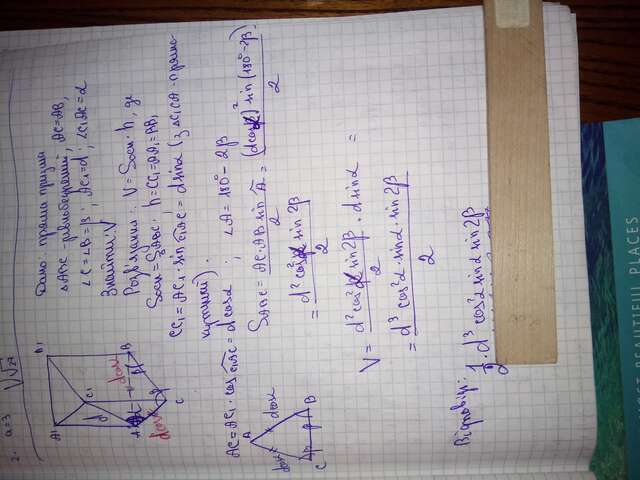 2. a=3 √√2
Дано: пряма призма
ΔABC - рівнобедрений; AC=AB,
∠C=∠B=β; AC₁=d; ∠C₁AC=α
Знайти: V
Розв'язання: V=Sосн·h, де
Sосн=SΔABC. h=CC₁=AA₁=BB₁
CC₁=AC₁·sin C₁AC=dsinα (з ΔC₁CA-прямо-
кутний).
AC=AC₁·cos C₁AC=dcosα; ∠A=180°-2β
SΔABC = AC·AB sin A / 2 = (dcosα)² sin(180°-2β) / 2
= d²cos²α sin2β / 2
V = d²cos²α sin2β / 2 · dsinα =
= d³cos²α sinα sin2β / 2
Відповідь: 1/2·d³cos²α sinα sin2β
A₁ B₁ C₁ d dcosα dcosα A B C
A dcosα dcosα C β β B
BEAUTIFUL PLACES